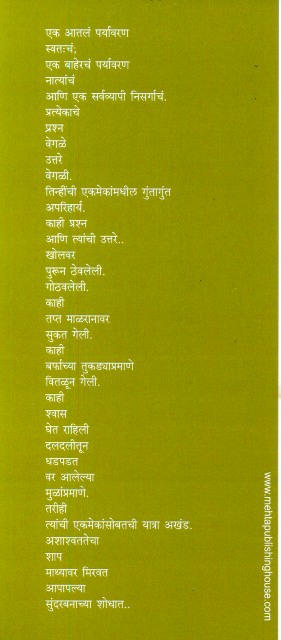 एक आतलं पर्यावरण
स्वतःचं;
एक बाहेरचं पर्यावरण
नात्यांचं
आणि एक सर्वव्यापी निसर्गाचं.
प्रत्येकाचे
प्रश्न
वेगळे
उत्तरे
वेगळी.
तिन्हींची एकमेकांमधील गुंतागुंत
अपरिहार्य.
काही प्रश्न
आणि त्यांची उत्तरे..
खोलवर
पुरून ठेवलेली.
गोठवलेली.
काही
तप्त माळरानावर
सुकत गेली.
काही
बर्फाच्या तुकड्याप्रमाणे
वितळून गेली.
काही
श्वास
घेत राहिली
दलदलीतून
धडपडत
वर आलेल्या
मुळांप्रमाणे.
तरीही
त्यांची एकमेकांसोबतची यात्रा अखंड.
अशाश्वततेचा
शाप
माथ्यावर मिरवत
आपापल्या
सुंदरबनाच्या शोधात..
www.mehtapublishinghouse.com